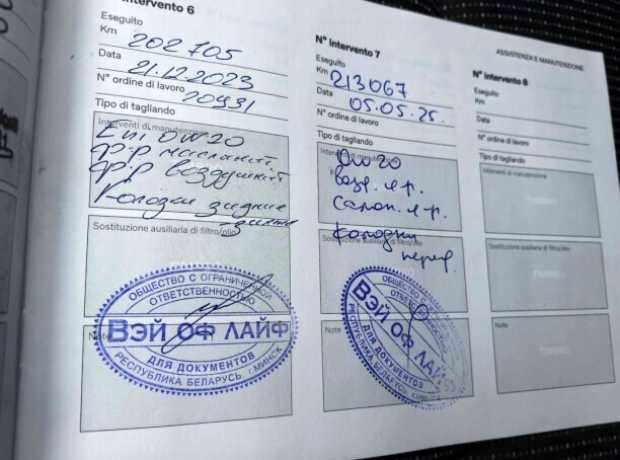 Intervento 6
Eseguito
Km 202 705
Data 21.12.2023
N° ordine di lavoro 20931
Tipo di tagliando
Interventi di manutenzione
0W20
ф-р масляный
ф-р воздушный
Колодки задние
Sostituzione ausiliaria di filtro/olio
Note
ОБЩЕСТВО С ОГРАНИЧЕННОЙ
ОТВЕТСТВЕННОСТЬЮ
ВЭЙ ОФ ЛАЙФ
ДЛЯ ДОКУМЕНТОВ
РЕСПУБЛИКА БЕЛАРУСЬ, Г. МИНСК
N° Intervento 7
Eseguito
Km 213067
Data 05.05.25.
N° ordine di lavoro
Tipo di tagliando
0W20
возд. ф-р.
салон. ф-р.
колодки
перед.
Sostituzione ausiliaria di filtro/olio
Note
ОТВЕТСТВЕННОСТЬЮ
ВЭЙ ОФ ЛАЙФ
ДЛЯ ДОКУМЕНТОВ
РЕСПУБЛИКА БЕЛАРУСЬ
ASSISTENZA E MANUTENZIONE
N° Intervento 8
Eseguito
Km
Data
N° ordine di lavoro
Tipo di tagliando
Interventi di manutenzione
Sostituzione ausiliaria di filtro/olio
Note